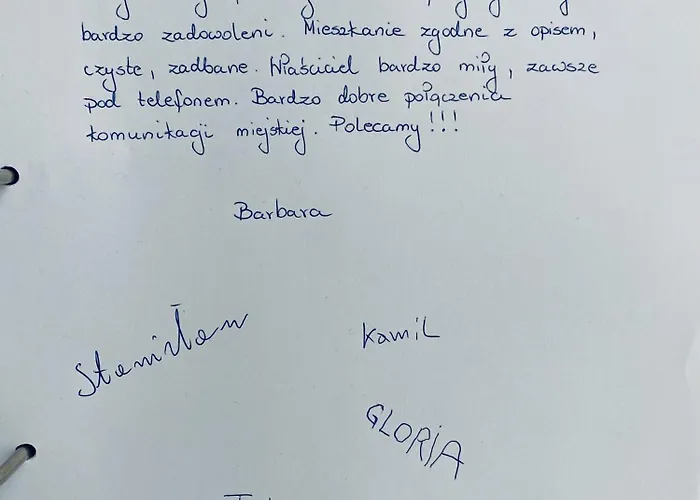 bardzo zadowoleni. Mieszkanie zgodne z opisem,
czyste, zadbane. Właściciel bardzo miły, zawsze
pod telefonem. Bardzo dobre połączenia
komunikacji miejskiej. Polecamy!!!
Barbara
Stanisław
Kamil
GLORIA